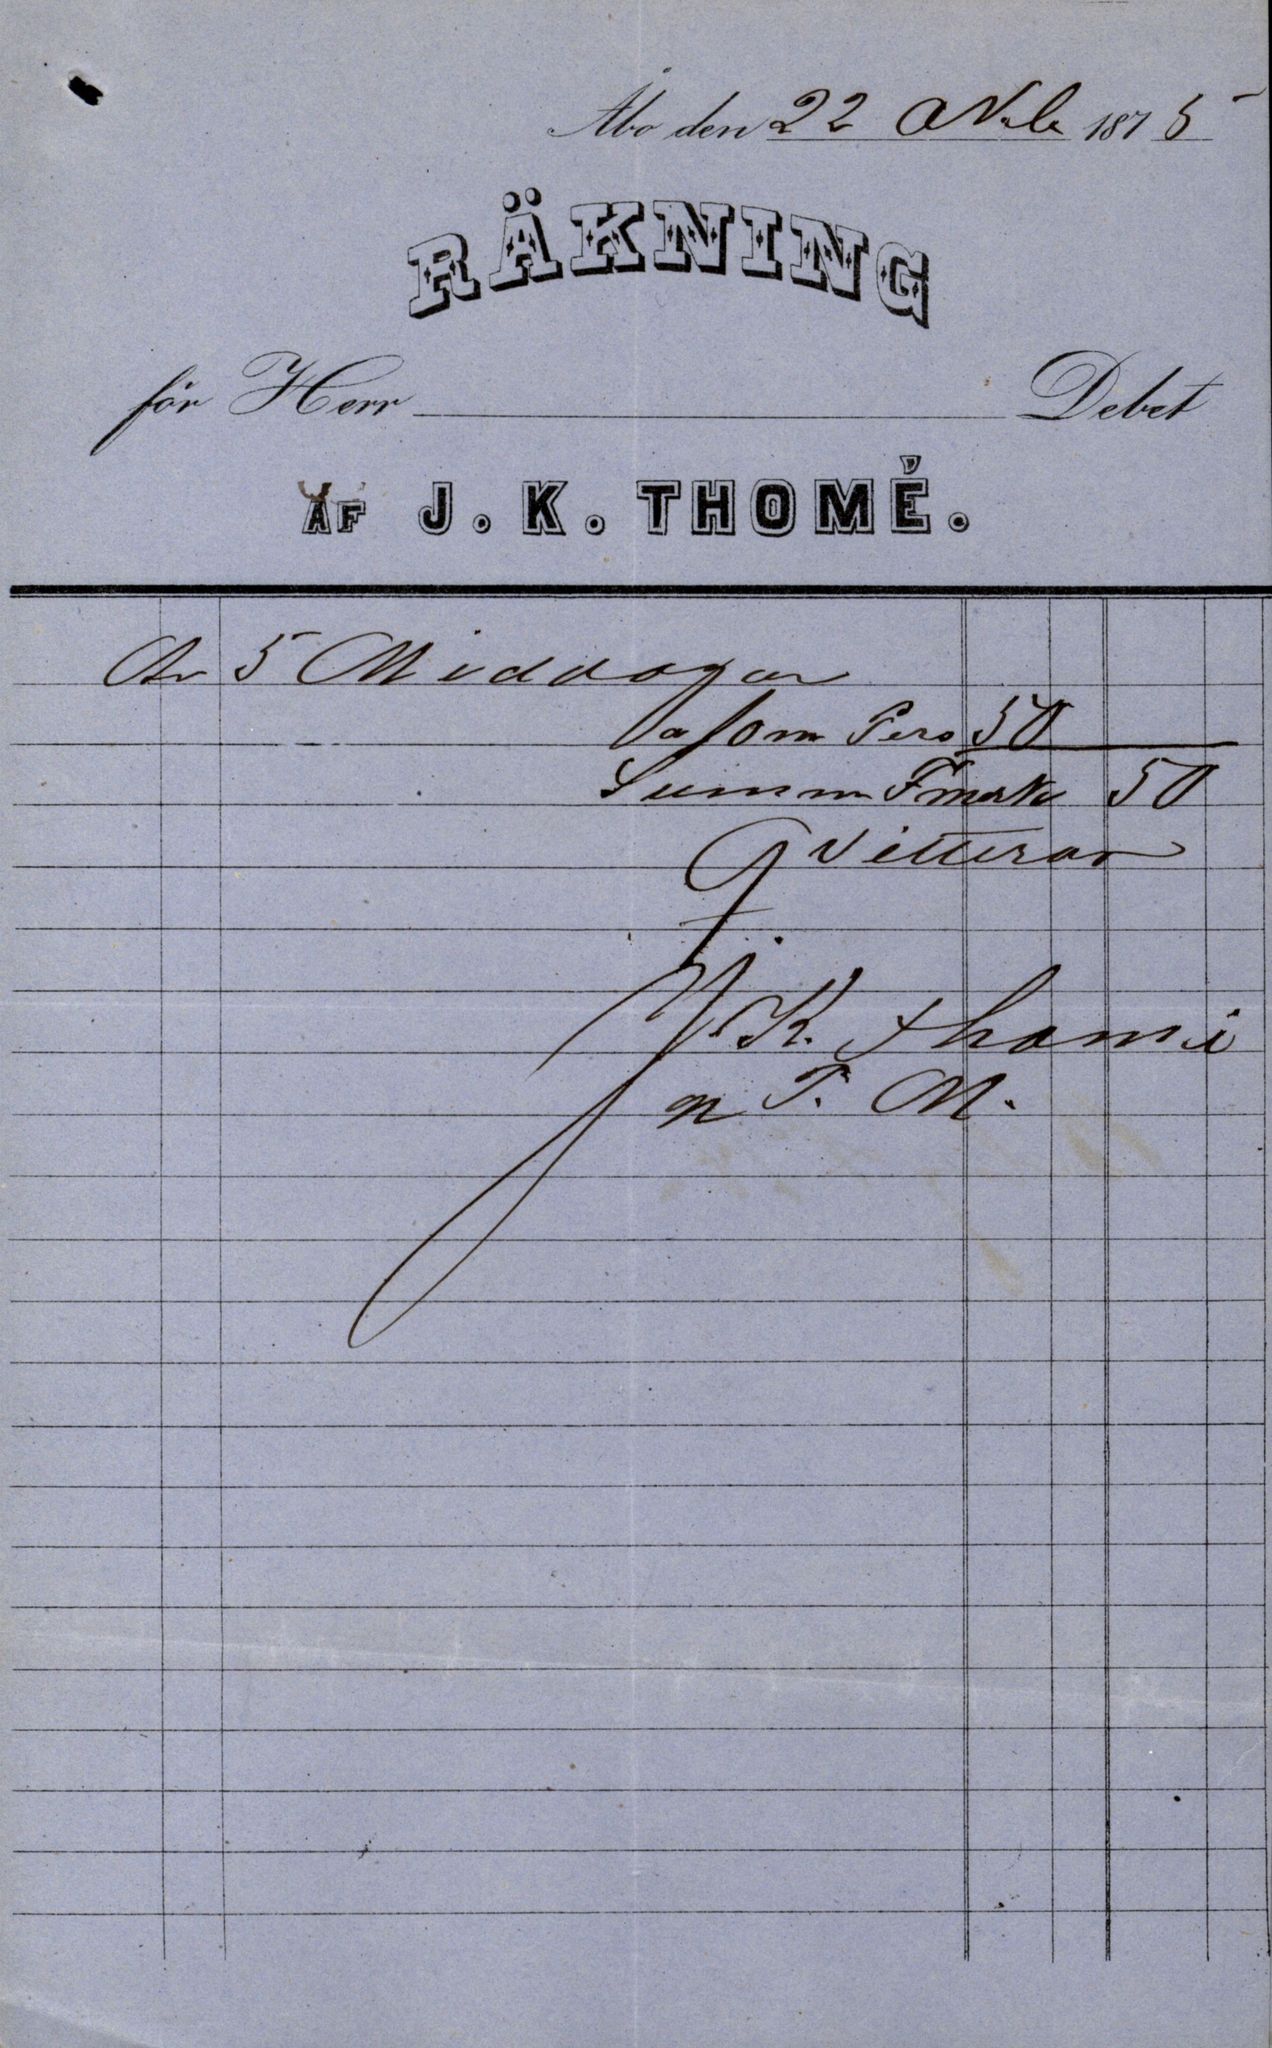 Åbo den 22 1875
RÄKNING
för Herr Debet
AF J. K. THOMÉ.
5 Middagar
Pers 50
Summa Fmark 50
Qvitteras
J. K. Thomé
T. M.